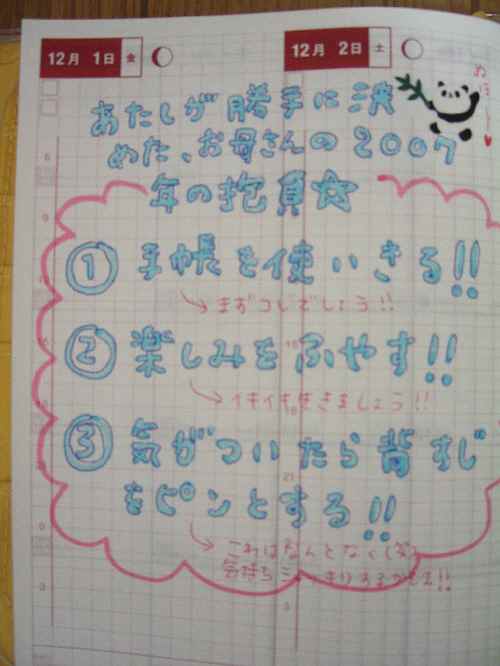 12月 1日 金
12月 2日 土
あたしが勝手に決
めた、お母さんの2007
年の抱負☆
① 手帳を使いきる!!
→まずコレでしょう!!
② 楽しみをふやす!!
→イキイキ生きましょう!!
③ 気がついたら背すじ
をピンとする!!
→これはなんとなく(笑)
気持ち